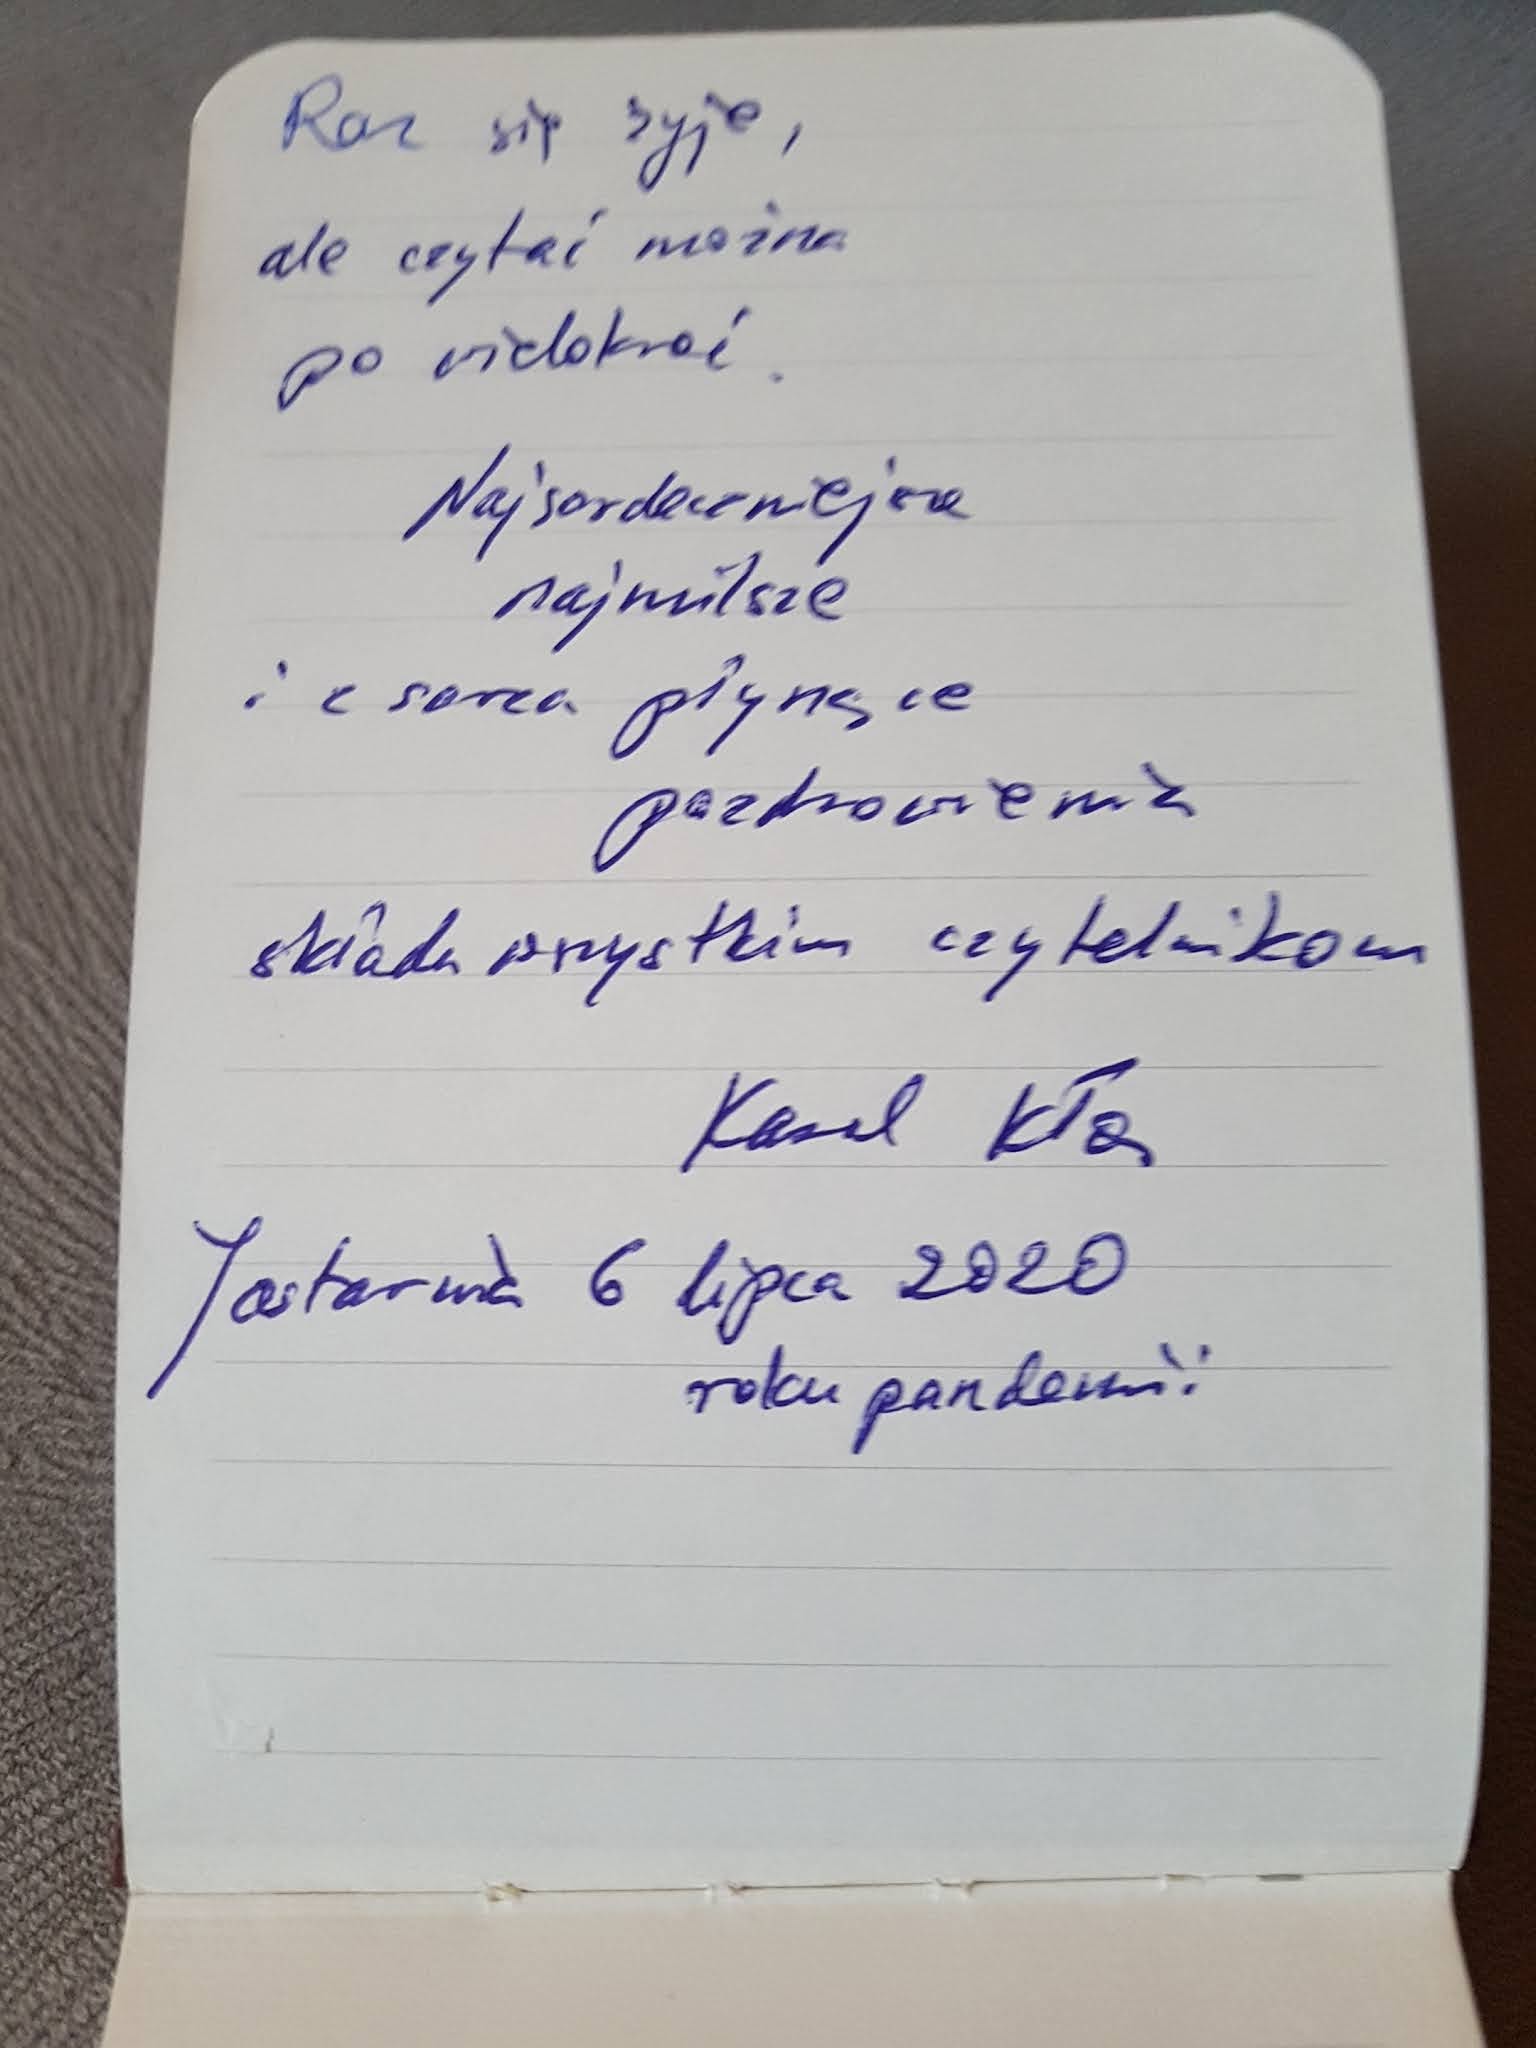 Raz się żyje,
ale czytać można
po wielokroć.
Najserdeczniejsze
najmilsze
i z serca płynące
pozdrowienia
składa wszystkim czytelnikom
Karol Kłos
Jastarnia 6 lipca 2020
roku pandemii